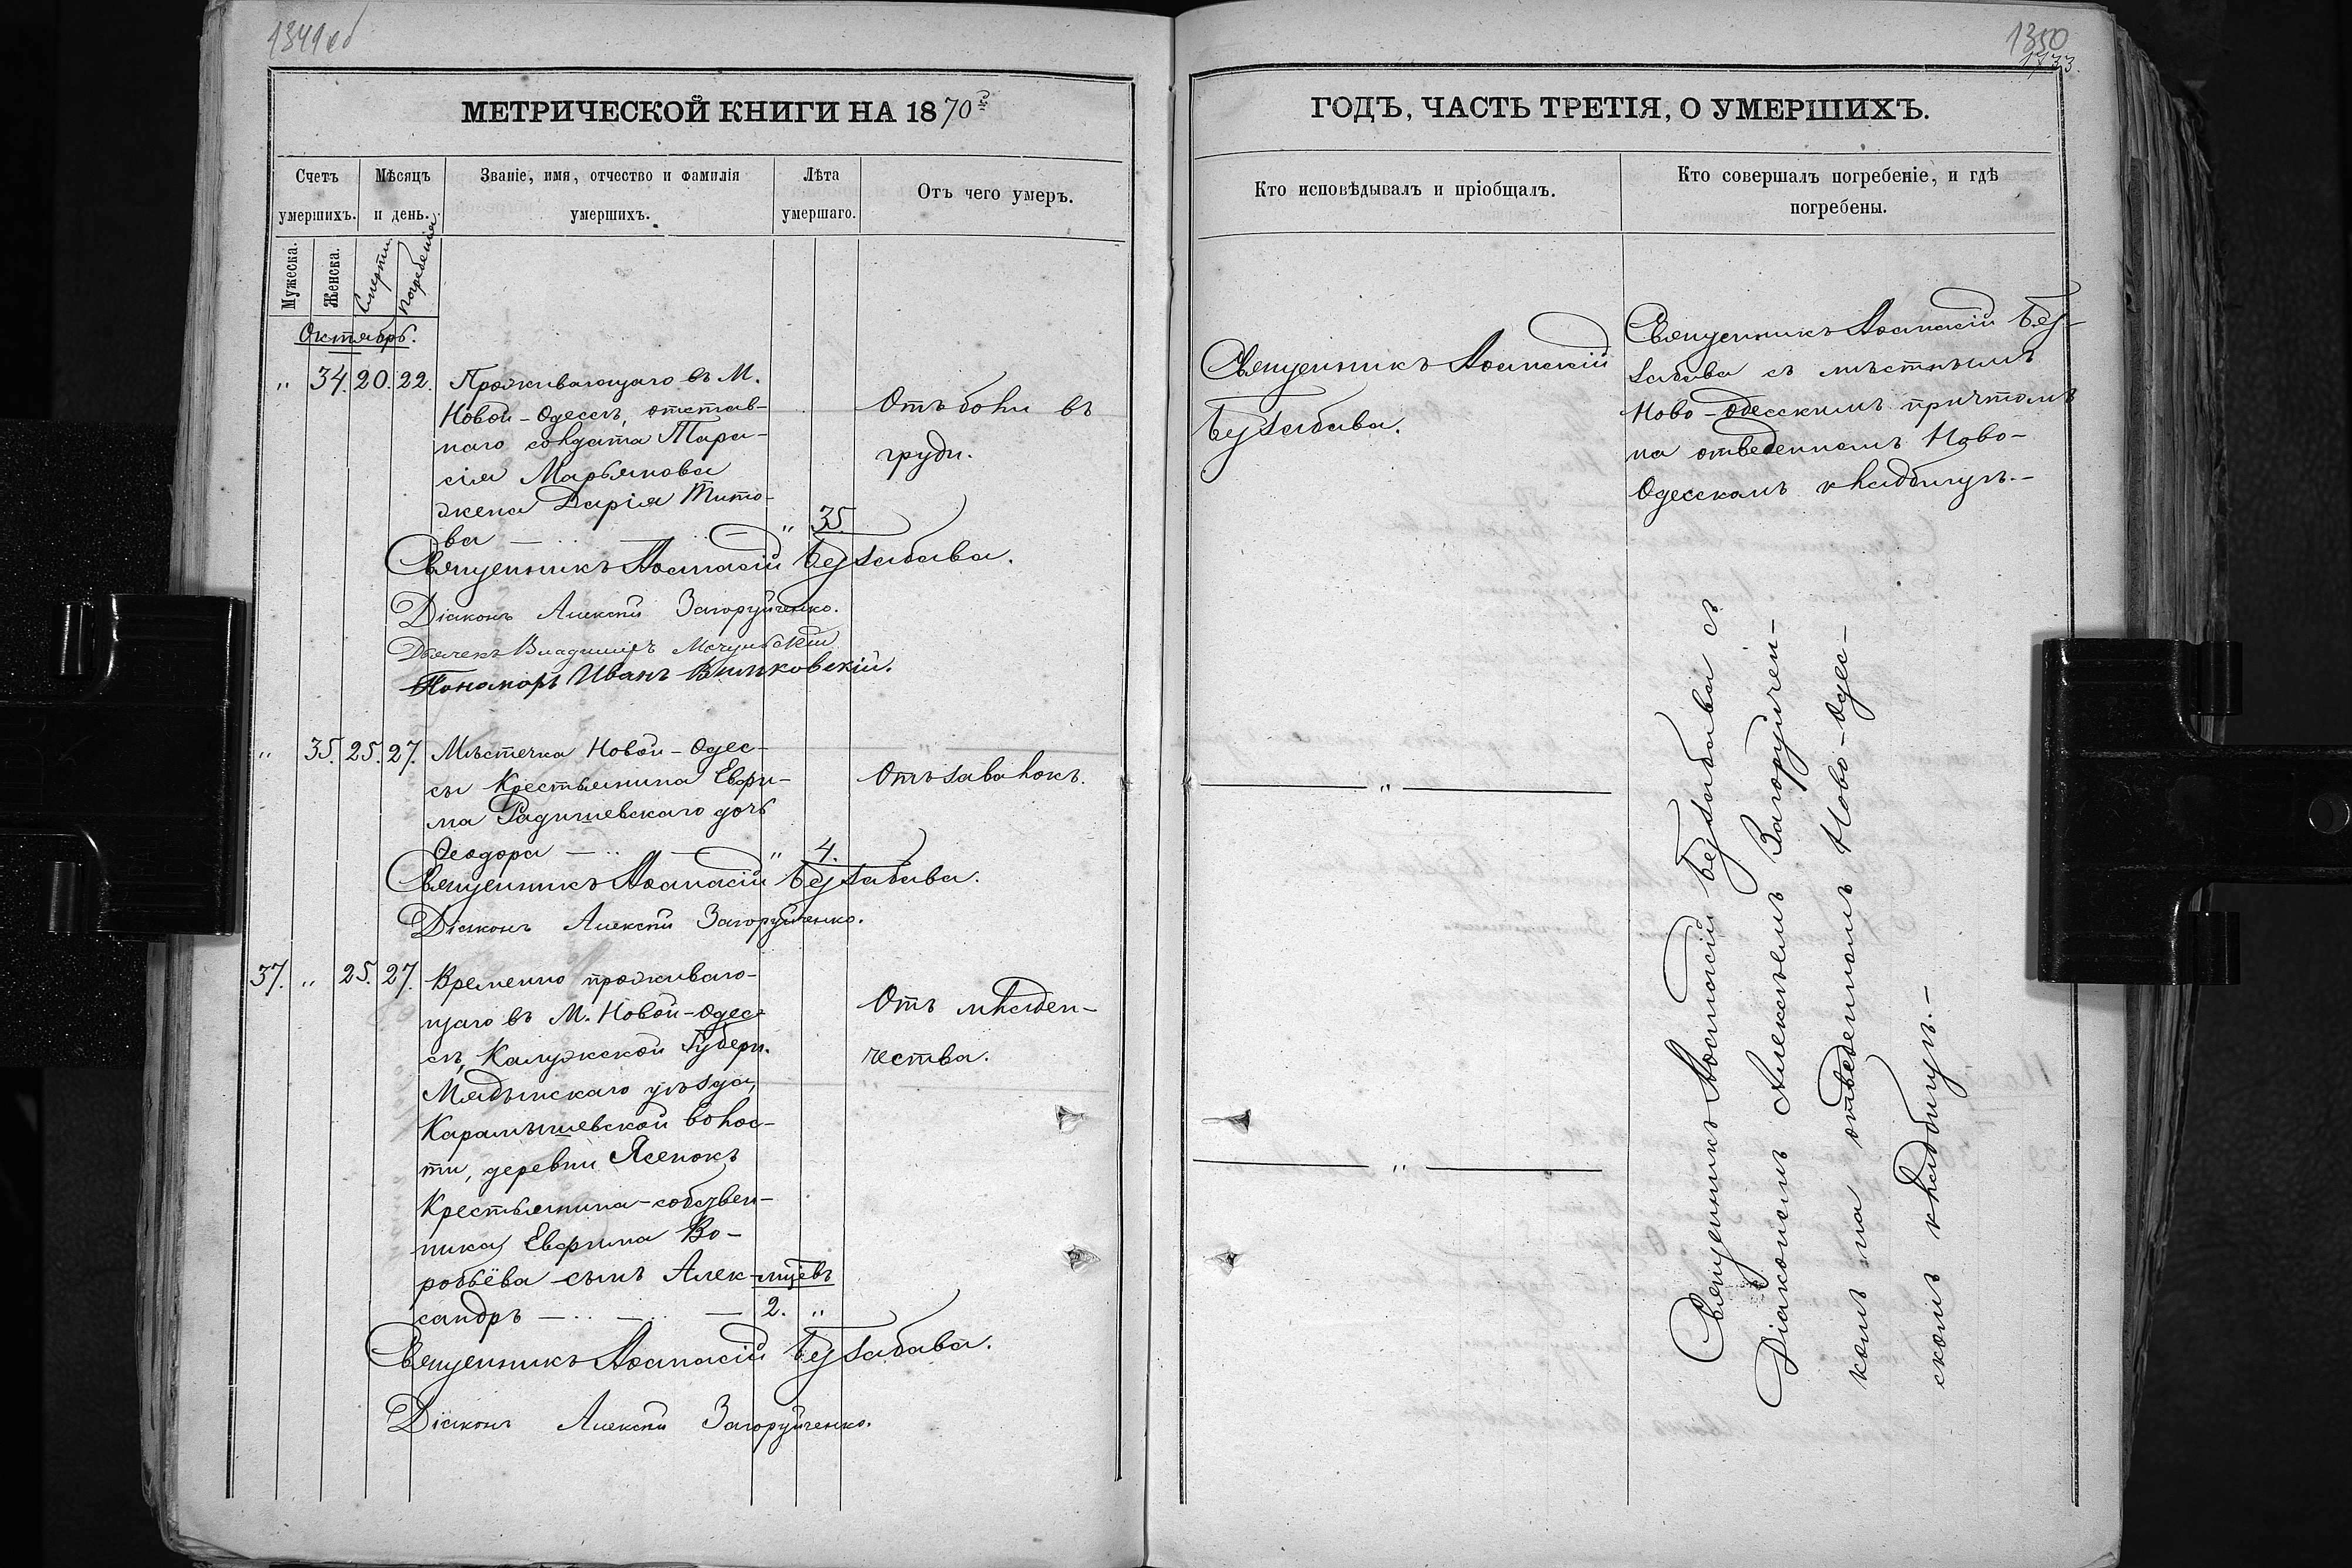 1349об
МЕТРИЧЕСКОЙ КНИГИ НА 1870й
Счетъ умершихъ.
Мѣсяцъ и день.
Званіе, имя, отчество и фамилія умершихъ.
Лѣта умершаго.
Отъ чего умеръ.
Мужеска.
Женска.
Смерти
Погребенія
Октябрь.
" 34. 20. 22. Проживающаго въ М.
Новой-Одессѣ, отстав-
наго солдата Тара-
сія Марьянова
жена Дарія Тито-
ва " 35
Отъ боли въ
груди.
Священникъ Аѳанасій Беззабава.
Діаконъ Алексѣй Загоруйченко.
Дьячекъ Владиміръ
Пономарь Иванъ Вилковскій.
" 35. 25. 27. Мѣстечка Новой-Одес-
сы Крестьянина Евфи-
ма Радишевскаго дочь
Ѳеодора " 4.
Отъ завалокъ.
Священникъ Аѳанасій Беззабава.
Діаконъ Алексѣй Загоруйченко.
37. " 25. 27. Временно проживаю-
щаго въ М. Новой-Одес-
сѣ, Калужской Губерн.
Мядынскаго уѣзда,
Карамышевской волос-
ти, деревни Ясенокъ
Крестьянина-собствен-
ника, Евфима Во-
робьёва сынъ Алек-
сандръ
мцевъ
2. "
Отъ младен-
чества.
Священникъ Аѳанасій Беззабава.
Діаконъ Алексѣй Загоруйченко.
1350
1733.
ГОДЪ, ЧАСТЬ ТРЕТІЯ, О УМЕРШИХЪ.
Кто исповѣдывалъ и пріобщалъ.
Кто совершалъ погребеніе, и гдѣ
погребены.
Священникъ Аѳанасій
Беззабава.
Священникъ Аѳанасій Без-
забава съ мѣстнымъ
Ново-Одесскимъ причтомъ
на отведенномъ Ново-
Одесскомъ кладбищѣ.-
"
"
Священникъ Аѳанасій Беззабава съ
Діакономъ Алексѣемъ Загоруйчен-
комъ на отведенномъ Ново-Одес-
скомъ кладбищѣ.-